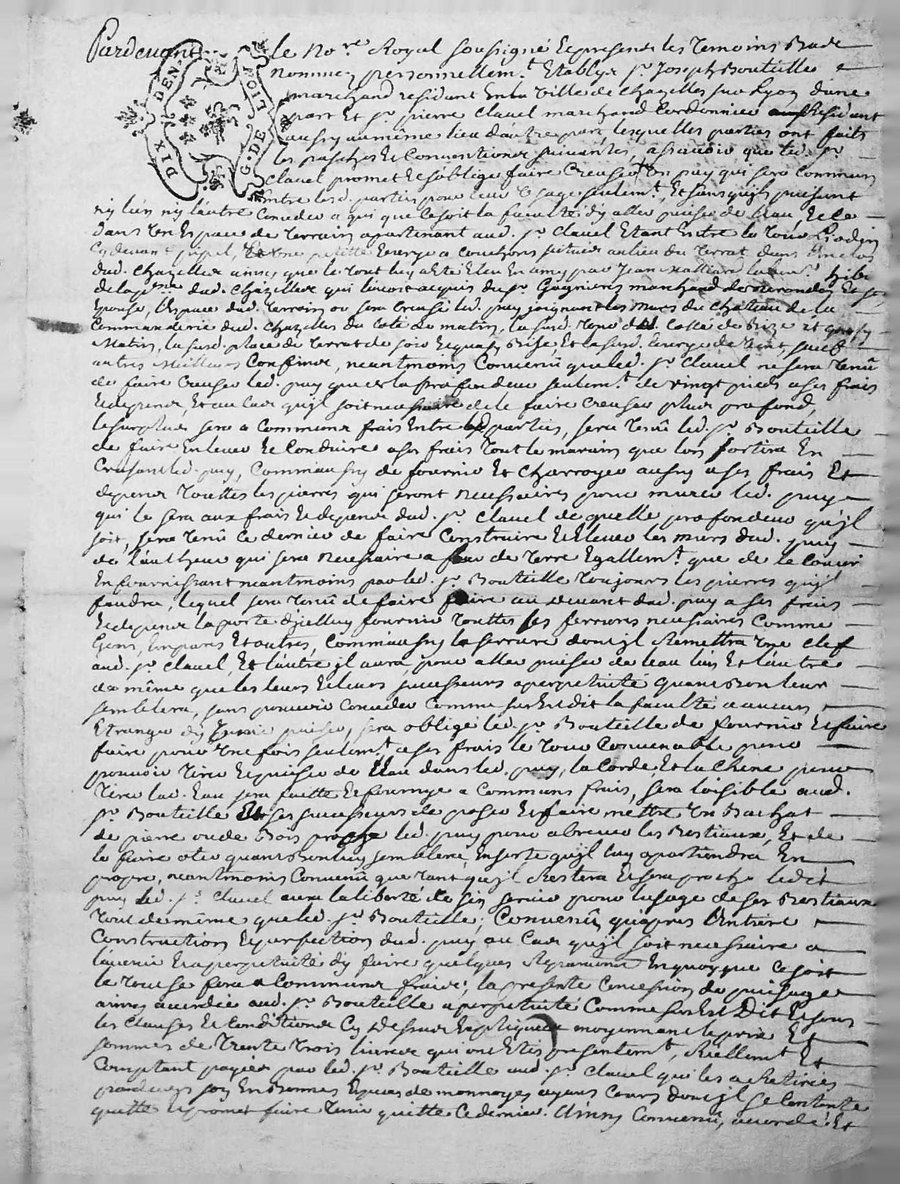 Pardevant le No.re Royal soussigné et presents les temoins Bade
nommez personnellem.t Etably s.r Joseph Bouteille
marchand residant En la ville de chazelles sur Lyon dune
part Et s.r pierre clavel marchand Cordonnier Residant
aussy au même lieu dautre part, lesquelles parties ont faits
les pasches Et Conventions suivantes, a scavoir que led. s.r
clavel promet Et soblige faire Creuser un puy qui sera Commun
Entre lesd. parties pour leur usage seulem.t, Et sans quils puissent
ny lun ny lautre Conceder a qui que ce soit la faculté dy aller puiser de leau Et ce
dans un Espace de terrain apartenant aud. s.r clavel Etant Entre la Tour
Cydevant une petitte verge a Couchons scitué au lieu du Terrat dans Enclos
dud. chazelles ainsy que le tout luy a Eté par Jean
dud. chazelles qui lavoit acquis du s.r Gagnieres marchand Et ses
Epouse, lEspace dud. Terrain ou sera Creusé led. puy joignant les Murs du chateau de la
Commanderie dud. chazelles du Coté de matin, la susd. Tour du Costé de Bize et
Matin, la susd. place de Terrat de soir Et Bise, Et la susd. verge de vent, sauf
autres Meilleurs Confins, neantmoins Convenû que led. s.r clavel ne sera tenû
de faire Creuser led. puy que de la profondeur seulem.t de vingt pieds a ses frais
Et depens, Et au Cas quil soit necessaire de le faire Creuser plus profond,
le surplus sera a Communs frais Entre les parties, sera tenû led. s.r Bouteille
de faire Enlever Et Conduire a ses frais tout le marain que lon sortira En
Creusant led. puy, Comme aussy de fournir Et Charroyer aussy a ses frais Et
depens Touttes les pierres qui seront necessaires pour murer led. puy
qui le sera aux frais Et depens dud. s.r clavel de quelle profondeur quil
soit, sera tenû Ce dernier de faire Construire Et Elever les murs dud. puy
de lautheur qui sera necessaire a fleur de Terre Egallem.t que de le Couvrir
En fournissant neantmoins par led. s.r Bouteille toujours les pierres quil
faudra, lequel sera tenû de faire faire au devant dud. puy a ses frais
Et depens la porte dicelluy fournir touttes les ferrures necessaires Comme
Gons, Emparres Et autres, Comme aussy la serrure dont il Remettra une clef
aud. s.r clavel, Et lautre il aura, pour aller puiser de leau luy Et lautre
de même que les leurs Et leurs successeurs a perpetuité quant Bon leur
semblera, sans pouvoir Conceder Comme sus Est dit la faculté a aucuns
Etrangers dy puiser, sera obligé led. s.r Bouteille de fournir Et faire
faire pour une fois seulem.t a ses frais le tour Convenable pour
pouvoir tirer Et puiser de leau dans led. puy, la Corde Et la chene pour
tirer lad. Eau sera faitte Et fournye a Communs frais, sera loisible aud.
s.r Bouteille Et ses successeurs de poser Et faire mettre un Bachat
de pierre ou de Bois proche led. puy pour abreuver les Bestiaux, Et de
le faire oter quant Bon luy semblera, En sorte quil luy apartiendra En
propre, neantmoins Convenû que tant quil Restera Et sera proche ledit
puy led. s.r clavel aura la liberté de sen servir pour lusage de ses Bestiaux
tout de même que led. s.r Bouteille; Convenû quapres lEntiere
Construction Et perfection dud. puy au Cas quil soit necessaire a
lavenir Et a perpetuité dy faire quelques Reparations En quoy que ce soit
le tout se fera a Communs frais; la presente Concession de puisage
ainsi accordée aud. s.r Bouteille a perpetuité Comme sus Est Dit Et sous
les clauses Et Conditions Cy dessus Expliquées moyennant le prix Et
somme de trente trois livres qui ont Etés presentem.t, Reellem.t Et
Comptant payées par led. s.r Bouteille aud. s.r clavel qui les a Retirées
pardevers soy En Bonnes Especes de monnoyes ayans Cours dont il se Contente
quitte Et promet faire tenir quitte Ce dernier. Ainsy Convenû, accordé Et
DIX DEN.
G. DE LION